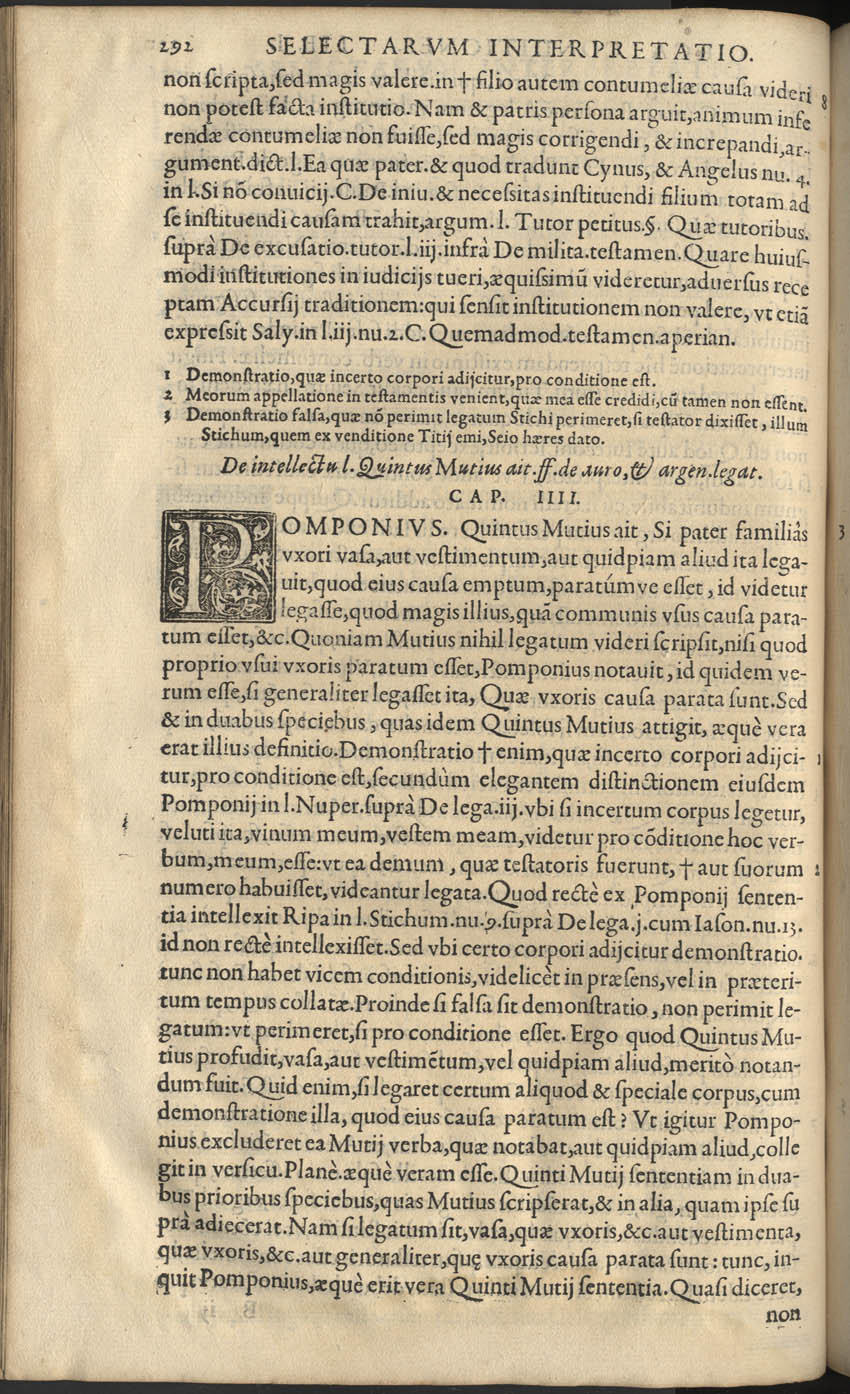 292 SELECTARVM INTERPRETATIO.
non ſcripta,ſed magis valere.in † filio autem contumeliæ cauſa videri 8
non poteſt facta inſtitutio. Nam & patris perſona arguit,animum infe
rendæ contumeliæ non fuiſſe,ſed magis corrigendi, & increpandi,ar-
gument.dict.l.Ea quæ pater.& quod tradunt Cynus, & Angelus nu. 4.
in l.Si nõ conuicij.C.De iniu.& neceſsitas inſtituendi filium totam ad
ſe inſtituendi cauſam trahit,argum. l. Tutor petitus.§. Quæ tutoribus.
ſuprà De excuſatio.tutor.l.iij.infrà De milita.teſtamen.Quare huiuſ-
modi inſtitutiones in iudicijs tueri,æquiſsimũ videretur,aduerſus rece
ptam Accurſij traditionem:qui ſenſit inſtitutionem non valere, vt etiã
expreſsit Saly.in l.iij.nu.2.C.Quemadmod.teſtamen.aperian.
1 Demonſtratio,quæ incerto corpori adijcitur,pro conditione eſt.
2 Meorum appellatione in teſtamentis venient,quæ mea eſſe credidi,cũ tamen non eſſent.
3 Demonſtratio falſa,quæ nõ perimit legatum Stichi perimeret,ſi teſtator dixiſſet, illum
Stichum,quem ex venditione Titij emi,Seio hæres dato.
De intellectu l. Quintus Mutius ait.ff.de auro,& argen.legat.
CAP. IIII.
POMPONIVS. Quintus Mutius ait, Si pater familiâs 3
vxori vaſa,aut veſtimentum,aut quidpiam aliud ita lega-
uit,quod eius cauſa emptum,paratúmve eſſet, id videtur
legaſſe,quod magis illius,quã communis vſus cauſa para-
tum eſſet,&c.Quoniam Mutius nihil legatum videri ſcripſit,niſi quod
proprio vſui vxoris paratum eſſet,Pomponius notauit, id quidem ve-
rum eſſe,ſi generaliter legaſſet ita, Quæ vxoris cauſa parata ſunt.Sed
& in duabus ſpeciebus, quas idem Quintus Mutius attigit, æquè vera
erat illius definitio.Demonſtratio † enim,quæ incerto corpori adijci- 1
tur,pro conditione eſt,ſecundùm elegantem diſtinctionem eiuſdem
Pomponij in l.Nuper.ſuprà De lega.iij.vbi ſi incertum corpus legetur,
veluti ita,vinum meum,veſtem meam,videtur pro cõditione hoc ver-
bum,meum,eſſe:vt ea demum, quæ teſtatoris fuerunt, † aut ſuorum 2
numero habuiſſet,videantur legata.Quod rectè ex Pomponij ſenten-
tia intellexit Ripa in l.Stichum.nu.9.ſuprà De lega.j.cum Iaſon.nu.13.
id non rectè intellexiſſet.Sed vbi certo corpori adijcitur demonſtratio.
tunc non habet vicem conditionis,videlicèt in præſens,vel in præteri-
tum tempus collatæ.Proinde ſi falſa ſit demonſtratio, non perimit le-
gatum:vt perimeret,ſi pro conditione eſſet. Ergo quod Quintus Mu-
tius profudit,vaſa,aut veſtimẽtum,vel quidpiam aliud,meritò notan-
dum fuit.Quid enim,ſi legaret certum aliquod & ſpeciale corpus,cum
demonſtratione illa, quod eius cauſa paratum eſt? Vt igitur Pompo-
nius excluderet ea Mutij verba,quæ notabat,aut quidpiam aliud,colle
git in verſicu.Planè.æquè veram eſſe.Quinti Mutij ſententiam in dua-
bus prioribus ſpeciebus,quas Mutius ſcripſerat,& in alia, quam ipſe ſu
prà adiecerat.Nam ſi legatum ſit,vaſa,quæ vxoris,&c.aut veſtimenta,
quæ vxoris,&c.aut generaliter,quę vxoris cauſa parata ſunt: tunc, in-
quit Pomponius,æquè erit vera Quinti Mutij ſententia.Quaſi diceret,
non